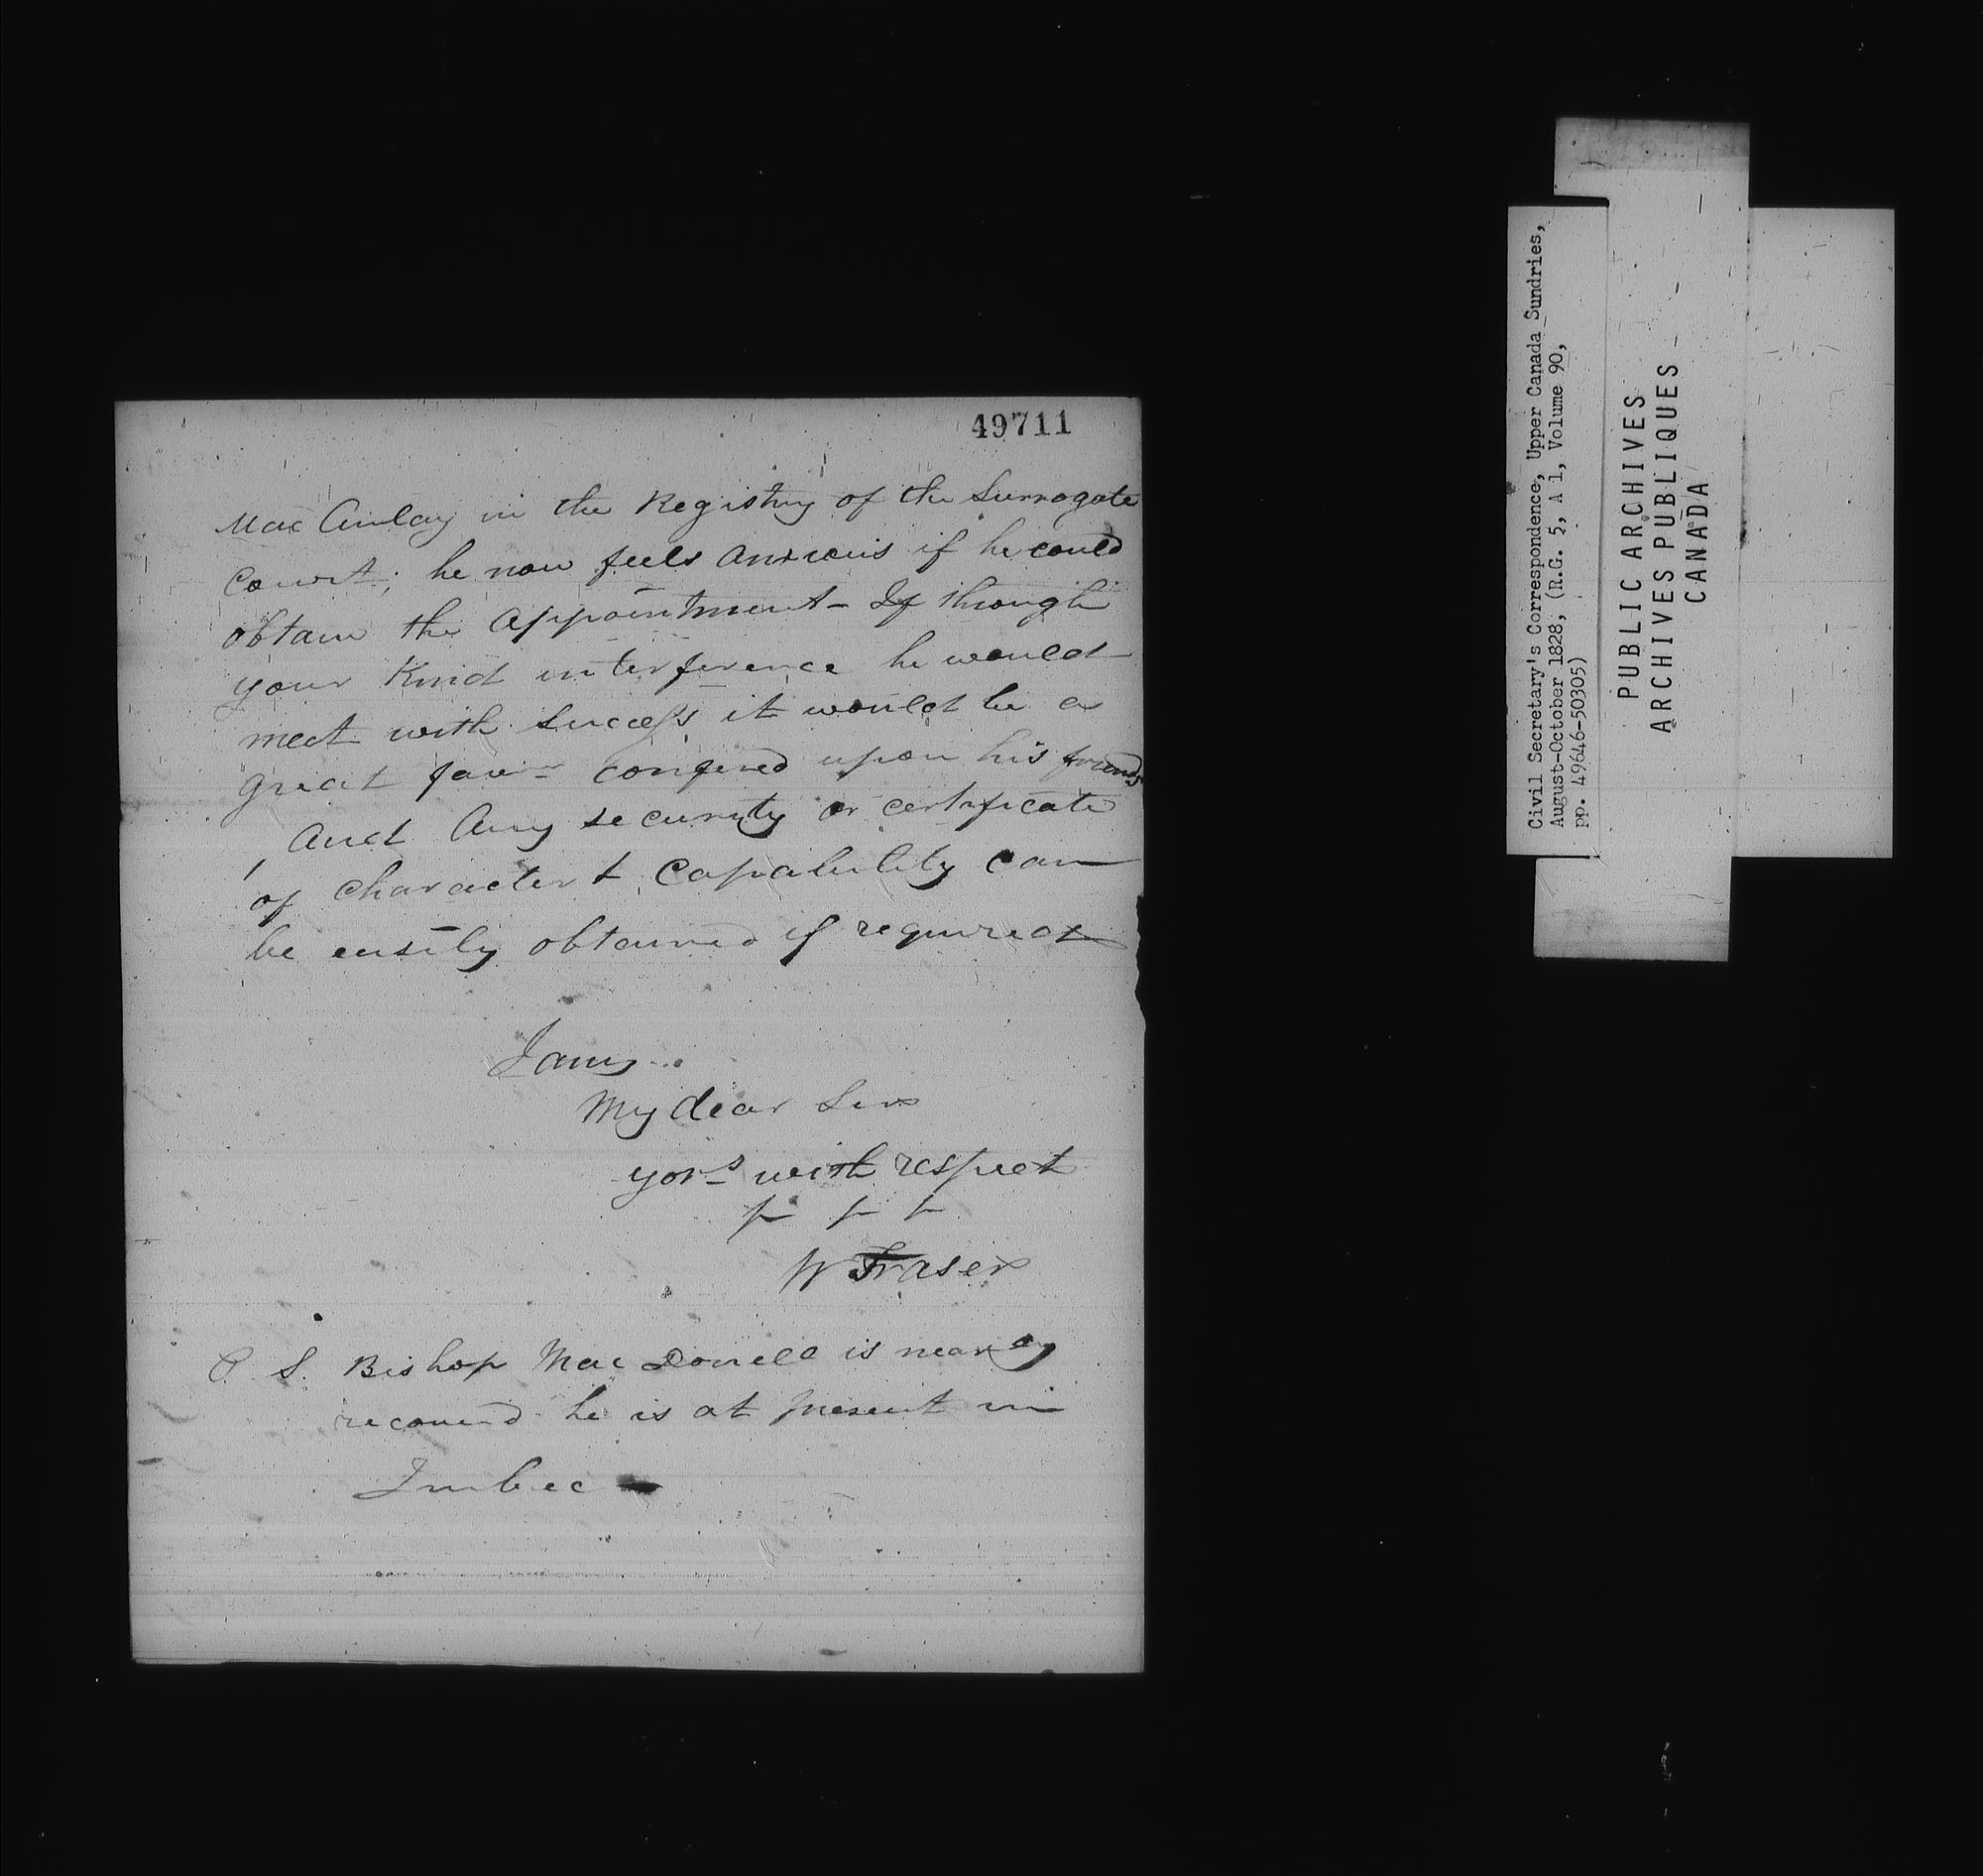 49711
Mac Aulay in the Registry of the Surrogate
Court; he now feels Anxious if he could
obtain the Appointment - If through
your Kind interference he would
meet with Success, it would be a
great favr confered upon his friends
And Any security or certificate
of Character & Capability can
be easily obtained if required
I am
My dear Sir
yors with respect
W Fraser
P S. Bishop Mac Donell is nearly
recoverd he is at present in
Quebec
Civil Secretary's Correspondence, Upper Canada Sundries,
August-October 1828, (R.G. 5, A 1, Volume 90,
pp. 49646-50305)
PUBLIC ARCHIVES
ARCHIVES PUBLIQUES
CANADA